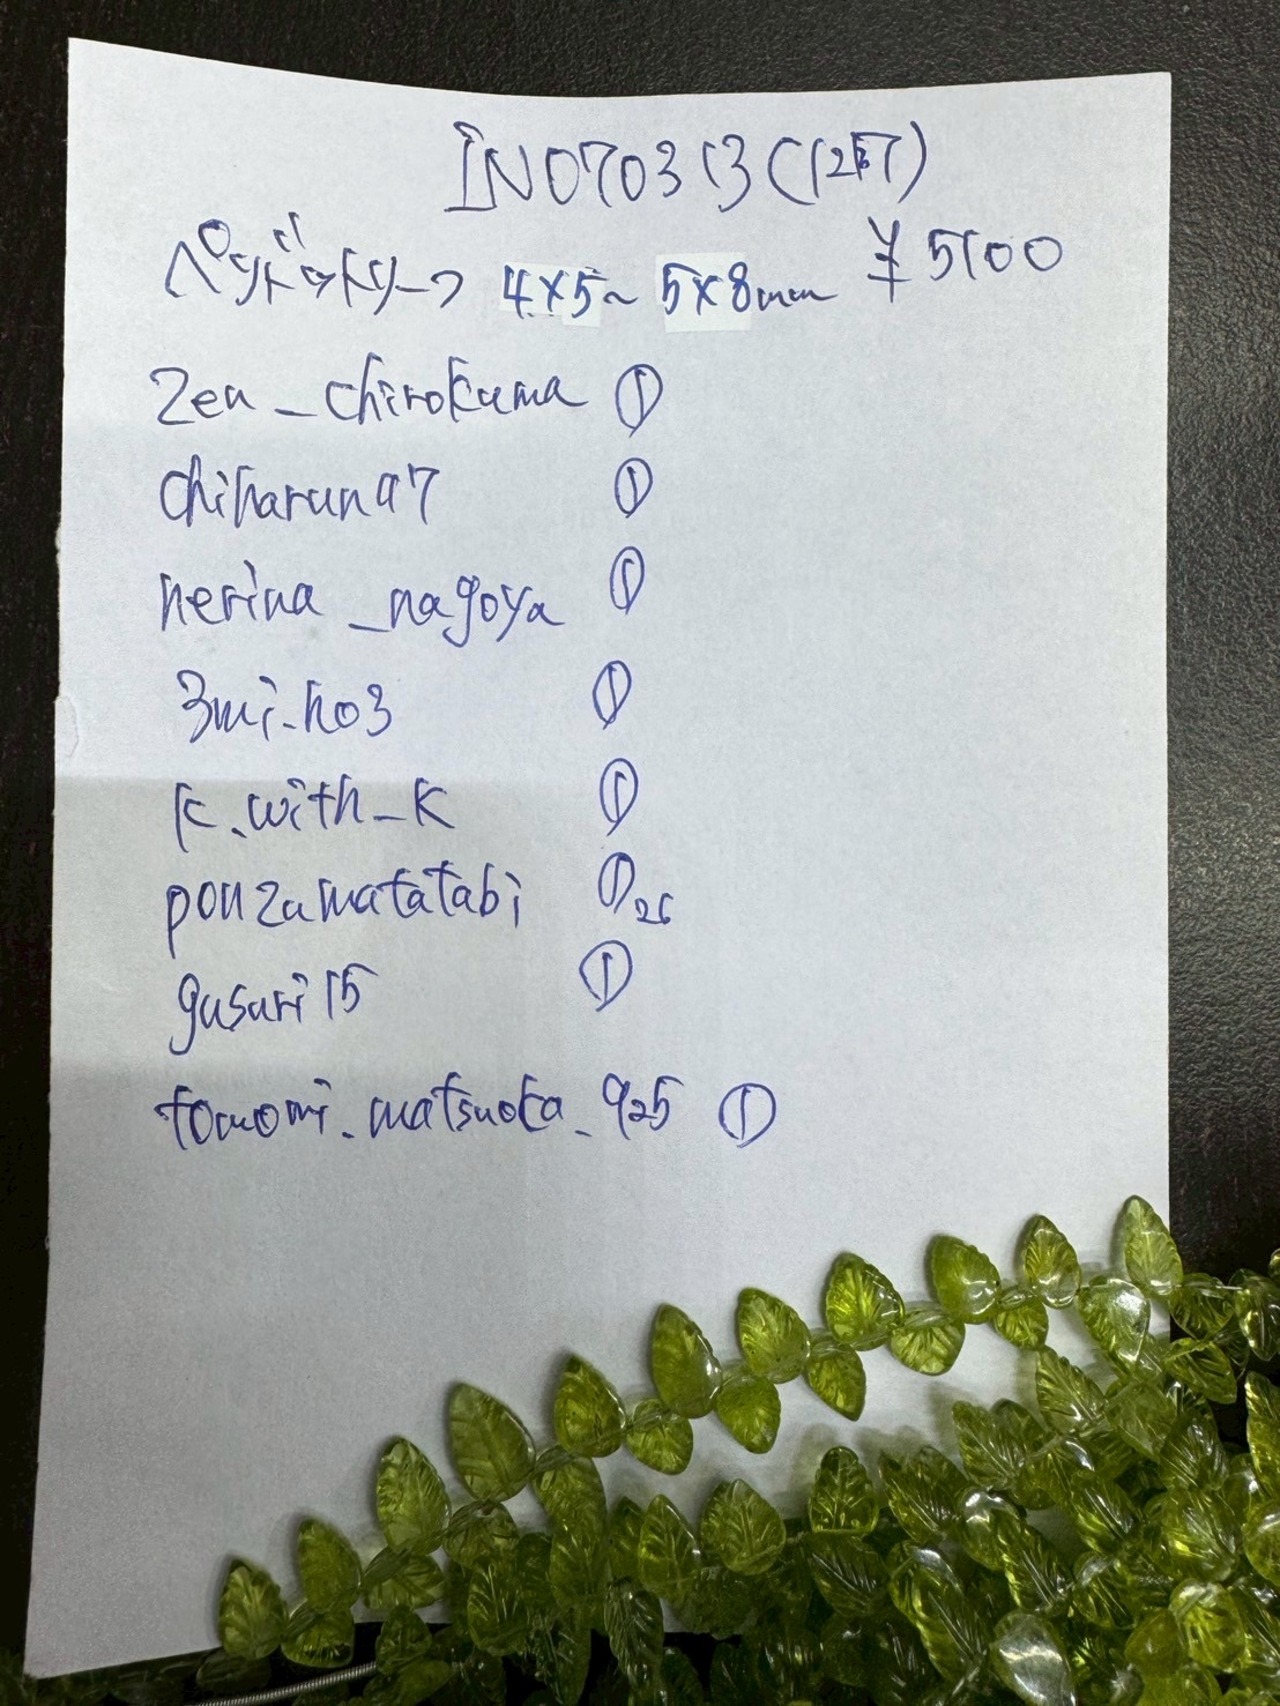 IN070313(12BT)
ペリドットリーフ 4×5~5×8mm ¥5100
zen_chirokuma ①
chiharuna7 ①
nerina_nagoya ①
3mi.ho3 ①
k.with_k ①
ponzamatatabi ①26
gusuri15 ①
tomomi.matsuoka_925 ①